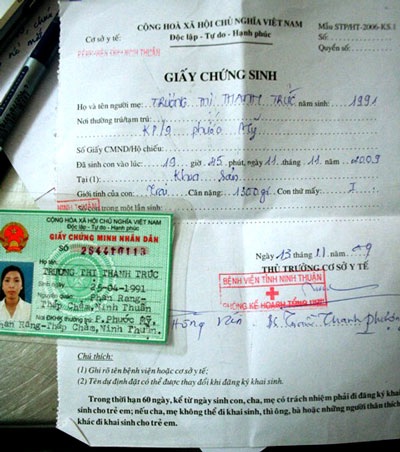 CỘNG HOÀ XÃ HỘI CHỦ NGHĨA VIỆT NAM
Độc lập - Tự do - Hạnh phúc
Mẫu STP/HT-2006-KS.1
Cơ sở y tế:
BỆNH VIỆN TỈNH NINH THUẬN
Số:
Quyển số:
GIẤY CHỨNG SINH
Họ và tên người mẹ: TRƯƠNG THỊ THANH TRÚC năm sinh: 1991
Nơi thường trú/tạm trú:
KP/9 phước Mỹ
Số Giấy CMND/Hộ chiếu:
Đã sinh con vào lúc: 19 giờ 45 phút, ngày 11 tháng 11 năm 2009
Tại (1): Khoa Sản
Giới tính của con: Trai Cân nặng: 1300gr Con thứ mấy: I
Số con trong một lần sinh:
Ngày 13 tháng 11 năm 09
THỦ TRƯỞNG CƠ SỞ Y TẾ
BỆNH VIỆN TỈNH NINH THUẬN
PHÒNG KẾ HOẠCH TỔNG HỢP
CỘNG HÒA XÃ HỘI CHỦ NGHĨA VIỆT NAM
Độc lập - Tự do - Hạnh phúc
GIẤY CHỨNG MINH NHÂN DÂN
SỐ
Họ tên
TRƯƠNG THỊ THANH TRÚC
25-04-1991
Nguyên quán Phan Rang-
Tháp Chàm, Ninh Thuận
Nơi ĐKHK thường trú P. Phước Mỹ,
Phan Rang-Tháp Chàm, Ninh Thuận
Chú thích:
(1) Ghi rõ tên bệnh viện hoặc cơ sở y tế;
(2) Tên dự định đặt có thể được thay đổi khi đăng ký khai sinh.
Trong thời hạn 60 ngày, kể từ ngày sinh con, cha, mẹ có trách nhiệm phải đi đăng ký khai
sinh cho trẻ em; nếu cha, mẹ không thể đi khai sinh, thì ông, bà hoặc những người thân thích
khác đi khai sinh cho trẻ em.